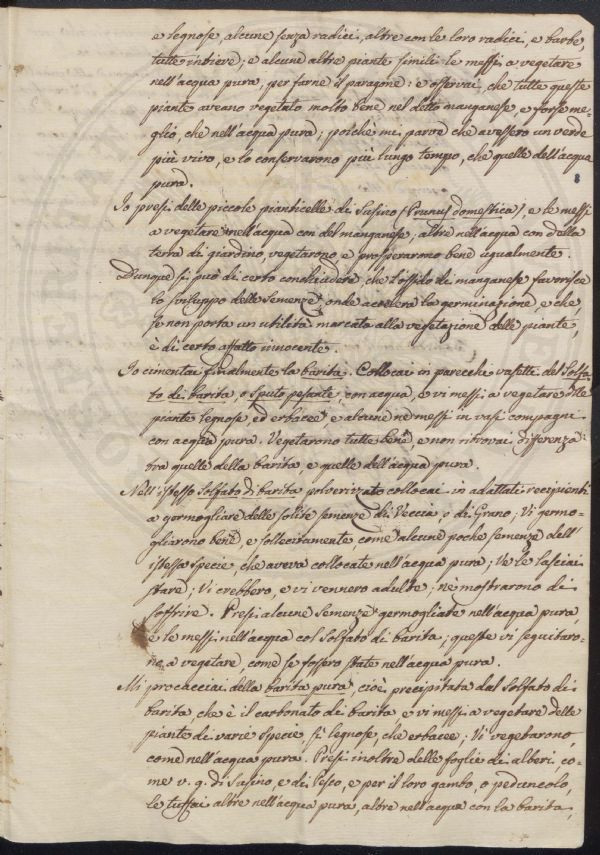 e legnose, alcune senza radici, altre con le loro radici, e barbe,
tutte intiere; e alcune altre piante simili le messi a vegetare
nell'acqua pura, per farne il paragone: e osservai, che tutte queste
piante aveano vegetato molto bene nel detto manganese, e forse me-
glio, che nell'acqua pura; poichè mi parve che avessero un verde
più vivo, e lo conservarono più lungo tempo, che quelle dell'acqua
pura.
Io presi delle piccole pianticelle di Susino (Prunus domestica) e le messi
a vegetare nell'acqua con del manganese; altre nell'acqua con della
terra di giardino, vegetarono e prosperarono bene egualmente.
Dunque si può di certo conchiudere, che l'ossido di manganese favorisce
lo sviluppo delle Semenze, onde accelera la germinazione, e che,
se non porta un utilità marcata alla vegetazione delle piante,
è di certo affatto innocente.
Io cimentai finalmente la barita. Collocai in parecchi vasetti del Solfa-
to di barita, o Sputo pesante, con acqua, e vi messi a vegetare delle
piante legnose, ed erbacee, e alcune ne messi in vasi compagni
con acqua pura. Vegetarono tutte bene, e non ritrovai differenza
tra quelle della barita, e quelle dell'acqua pura.
Nell'istesso Solfato di barita polverizzato collocai in adattati recipienti
a germogliare delle solite semenze di Veccia, e di Grano; Vi germo-
gliarono bene, e sollecitamente, come alcune poche semenze dell'
istessa specie, che aveva collocate nell'acqua pura; Ve le lasciai
stare; Vi crebbero, e vi vennero adulte; nè mostrarono di
soffrire. Presi alcune Semenze germogliate nell'acqua pura,
e le messi nell'acqua col Solfato di barita; queste vi seguitaro-
no a vegetare, come se fossero state nell'acqua pura.
Mi procacciai della barita pura, cioè precipitata dal Solfato di
barita, che è il carbonato di barita, e vi messi a vegetare delle
piante di varie specie sì legnose, che erbacee; Vi vegetarono,
come nell'acqua pura. Presi inoltre delle foglie di alberi, co-
me v. g. di Susino, e di Pesco, e per il loro gambo, o peduncolo,
le tuffai altre nell'acqua pura, altre nell'acqua con la barita,